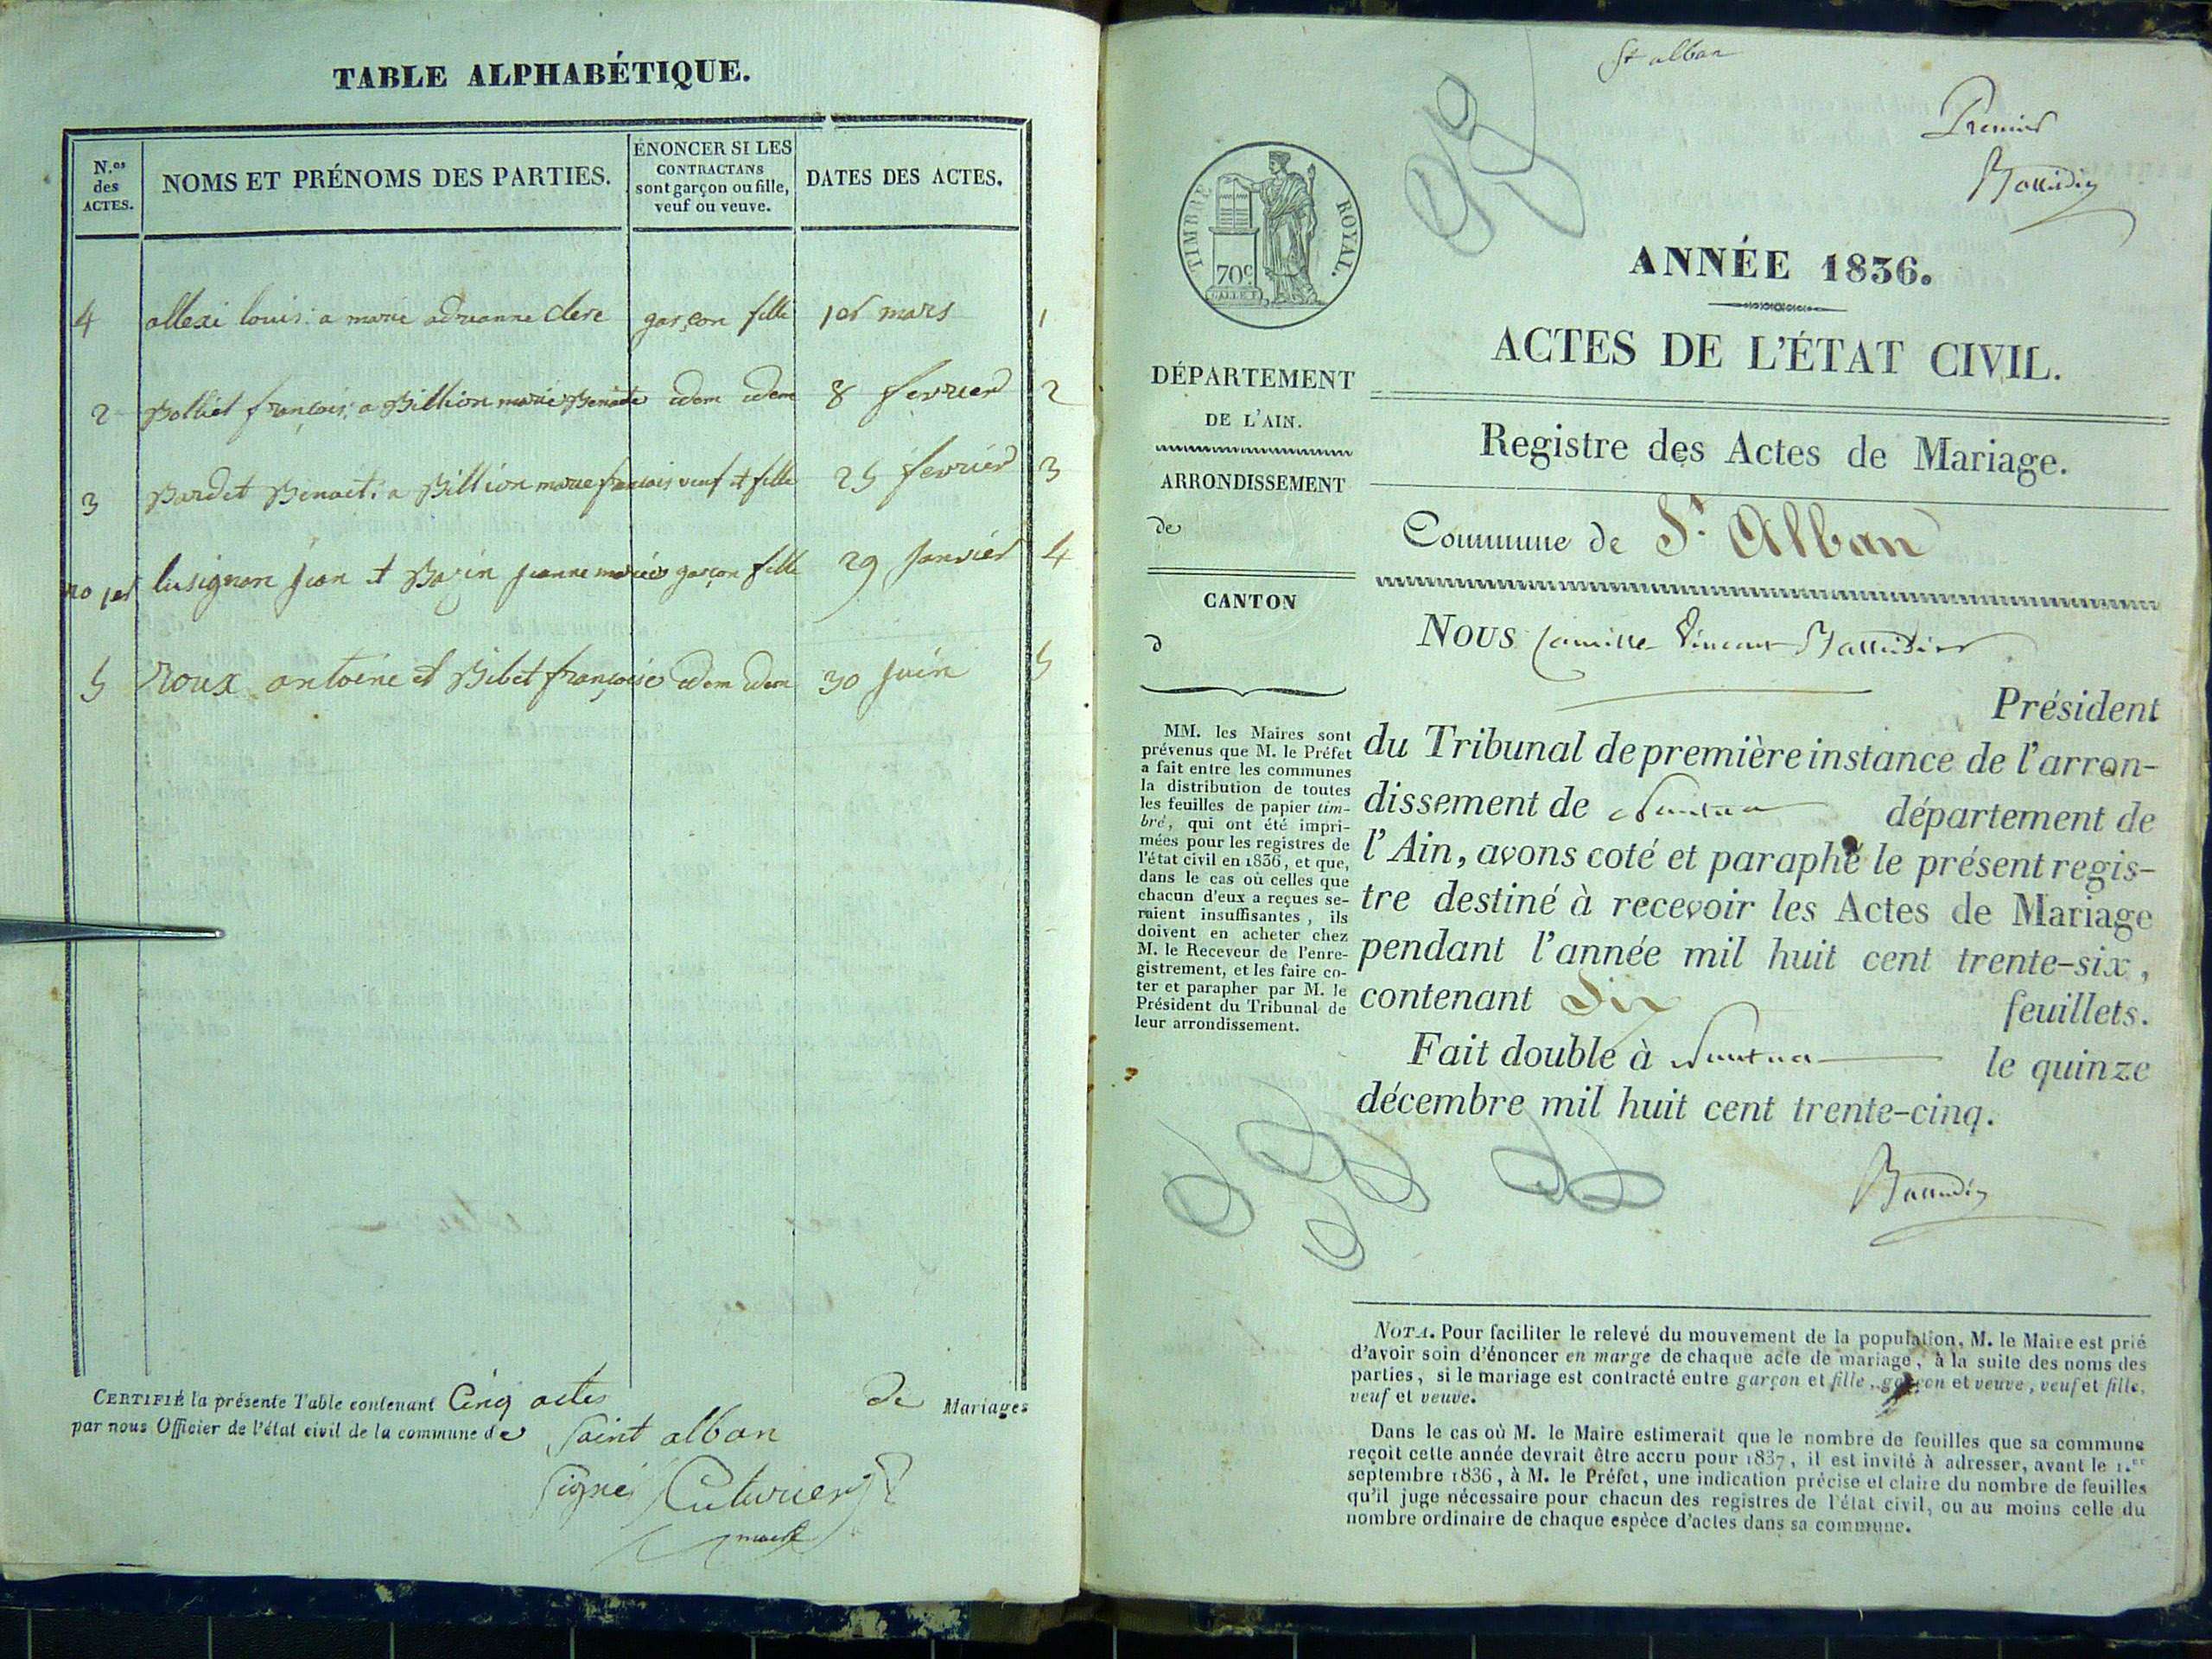 TABLE ALPHABÉTIQUE.
N.os des ACTES.
NOMS ET PRÉNOMS DES PARTIES.
ÉNONCER SI LES
CONTRACTANS
sont garçon ou fille,
veuf ou veuve.
DATES DES ACTES.
4 allexi louis: a marie adrianne clere garçon fille 1er mars 1
2 Bolliet françois; a Billion marie Benoite idem idem 8 fevrier 2
3 Bardet Benoit: a Billion marie françois veuf et fille 25 fevrier 3
no 1er lusignan jean et Bazin jeanne marie garçon fille 29 janvier 4
5 Roux antoine et Bibet françoise idem idem 30 juin 5
CERTIFIÉ la présente Table contenant Cinq actes de Mariages
par nous Officier de l'état civil de la commune de Saint alban
Signé Cuturier
maire
St alban
Premier
TIMBRE ROYAL.
70c
ANNÉE 1836.
ACTES DE L'ÉTAT CIVIL.
Registre des Actes de Mariage.
Commune de St Alban
DÉPARTEMENT
DE L'AIN.
ARRONDISSEMENT
de
CANTON
d
MM. les Maires sont
prévenus que M. le Préfet
a fait entre les communes
la distribution de toutes
les feuilles de papier tim-
bré, qui ont été impri-
mées pour les registres de
l'état civil en 1836, et que,
dans le cas où celles que
chacun d'eux a reçues se-
raient insuffisantes, ils
doivent en acheter chez
M. le Receveur de l'enre-
gistrement, et les faire co-
ter et parapher par M. le
Président du Tribunal de
leur arrondissement.
Nous Camille Vincent
Président
du Tribunal de première instance de l'arron-
dissement de Nantua département de
l'Ain, avons coté et paraphé le présent regis-
tre destiné à recevoir les Actes de Mariage
pendant l'année mil huit cent trente-six,
contenant Dix feuillets.
Fait double à Nantua le quinze
décembre mil huit cent trente-cinq.
NOTA. Pour faciliter le relevé du mouvement de la population, M. le Maire est prié
d'avoir soin d'énoncer en marge de chaque acte de mariage, à la suite des noms des
parties, si le mariage est contracté entre garçon et fille, garçon et veuve, veuf et fille,
veuf et veuve.
Dans le cas où M. le Maire estimerait que le nombre de feuilles que sa commune
reçoit cette année devrait être accru pour 1837, il est invité à adresser, avant le 1.er
septembre 1836, à M. le Préfet, une indication précise et claire du nombre de feuilles
qu'il juge nécessaire pour chacun des registres de l'état civil, ou au moins celle du
nombre ordinaire de chaque espèce d'actes dans sa commune.